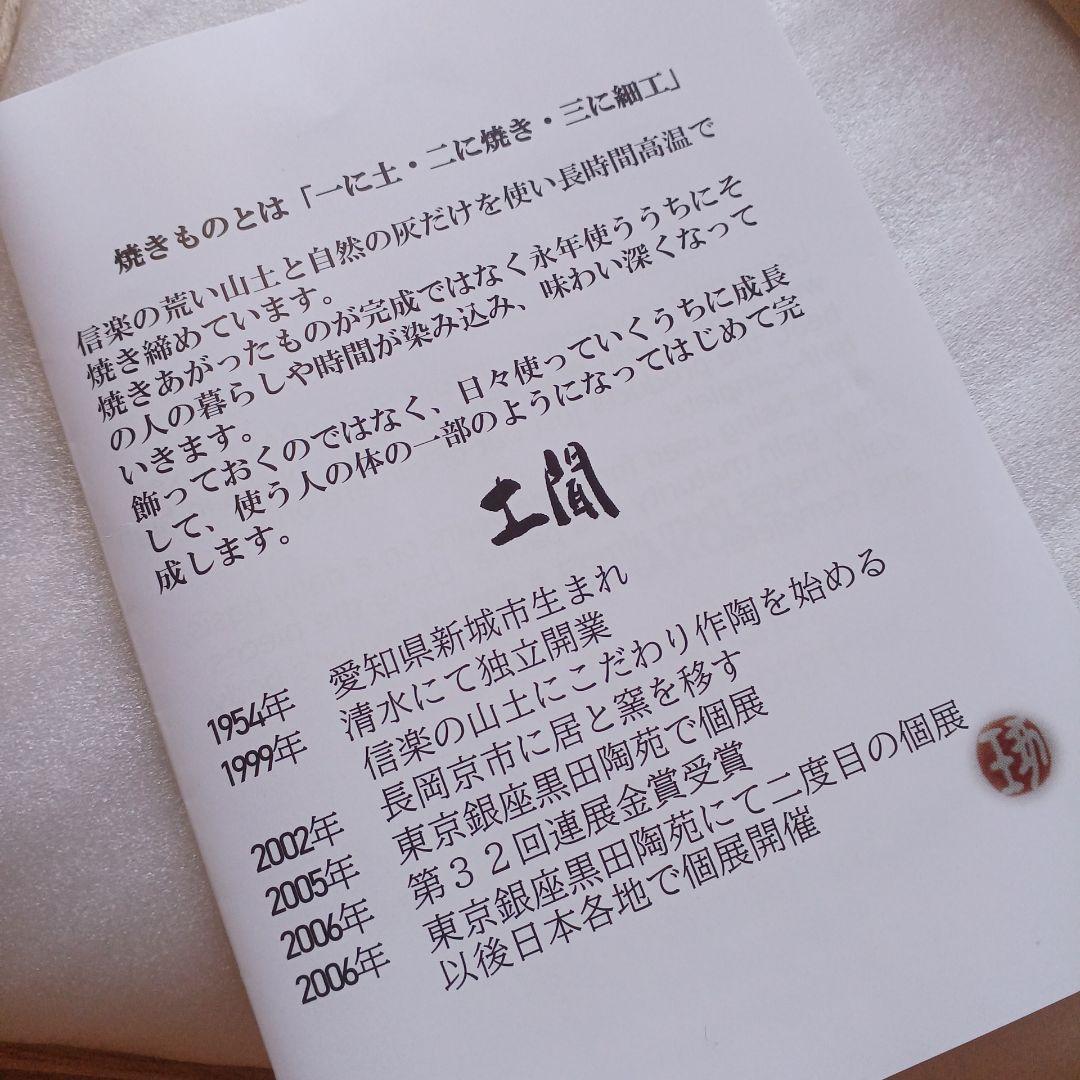 焼きものとは「一に土・二に焼き・三に細工」
信楽の荒い山土と自然の灰だけを使い長時間高温で
焼き締めています。
焼きあがったものが完成ではなく永年使ううちにそ
の人の暮らしや時間が染み込み、味わい深くなって
いきます。
飾っておくのではなく、日々使っていくうちに成長
して、使う人の体の一部のようになってはじめて完
成します。
1954年 愛知県新城市生まれ
1999年 清水にて独立開業
信楽の山土にこだわり作陶を始める
2002年 長岡京市に居と窯を移す
2005年 東京銀座黒田陶苑で個展
2006年 第３２回連展金賞受賞
2006年 東京銀座黒田陶苑にて二度目の個展
以後日本各地で個展開催